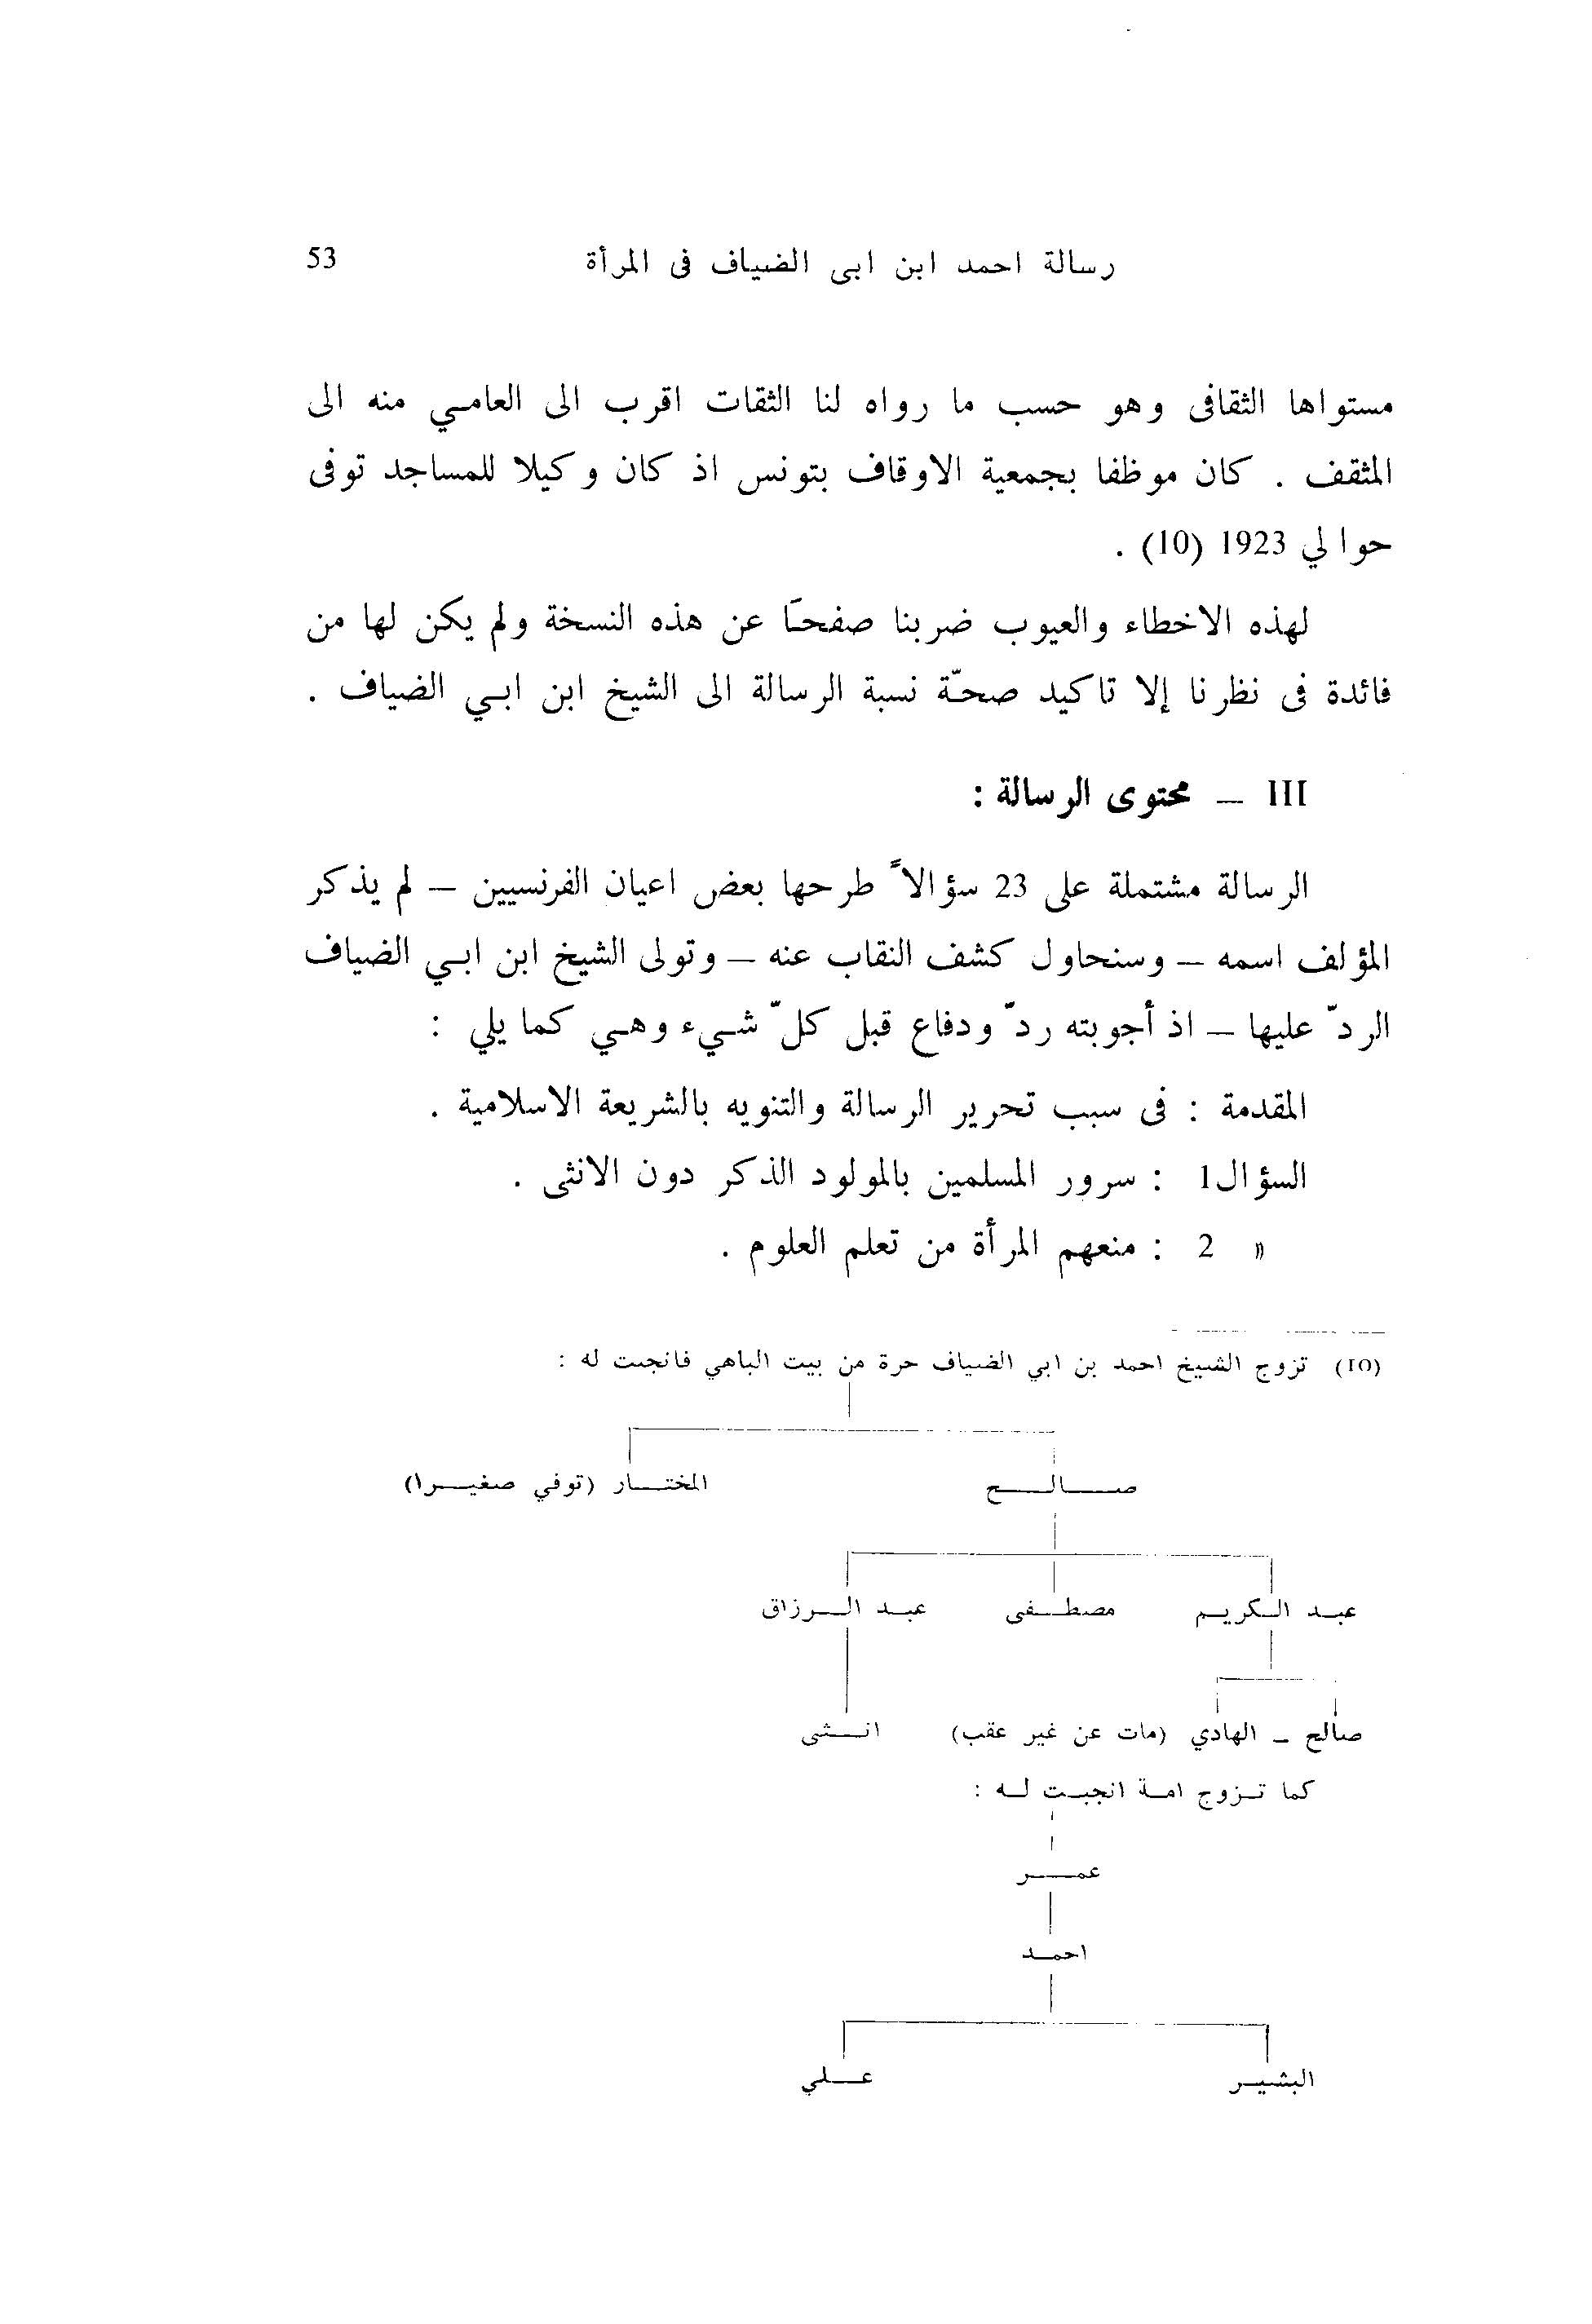 رسالة احمد ابن ابى الضياف فى المرأة 53
مستواها الثقافى وهو حسب ما رواه لنا الثقات اقرب الى العامي منه الى
المثقف . كان موظفا بجمعية الاوقاف بتونس اذ كان وكيلا للمساجد توفى
حوالي 1923 (10) .
لهذه الاخطاء والعيوب ضربنا صفحًا عن هذه النسخة ولم يكن لها من
فائدة فى نظرنا إلا تاكيد صحّة نسبة الرسالة الى الشيخ ابن ابي الضياف .
III – محتوى الرسالة :
الرسالة مشتملة على 23 سؤالاً طرحها بعض اعيان الفرنسيين – لم يذكر
المؤلف اسمه – وسنحاول كشف النقاب عنه – وتولى الشيخ ابن ابي الضياف
الردّ عليها – اذ أجوبته ردّ ودفاع قبل كلّ شيء وهي كما يلي :
المقدمة : فى سبب تحرير الرسالة والتنويه بالشريعة الاسلامية .
السؤال1 : سرور المسلمين بالمولود الذكر دون الانثى .
» 2 : منعهم المرأة من تعلم العلوم .
(10) تزوج الشيخ احمد بن ابي الضياف حرة من بيت الباهي فانجبت له :
صالح المختار (توفي صغيرا)
عبد الكريم مصطفى عبد الرزاق
صالح – الهادي (مات عن غير عقب) انثى
كما تزوج امة انجبت له :
عمر
احمد
البشير علي